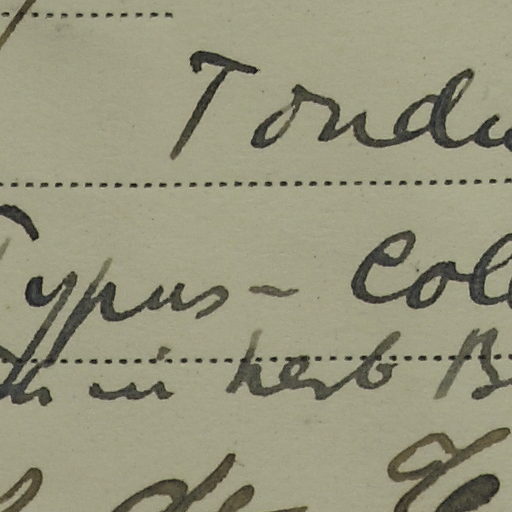 Tondu
Typus - Coll
in herb B
de